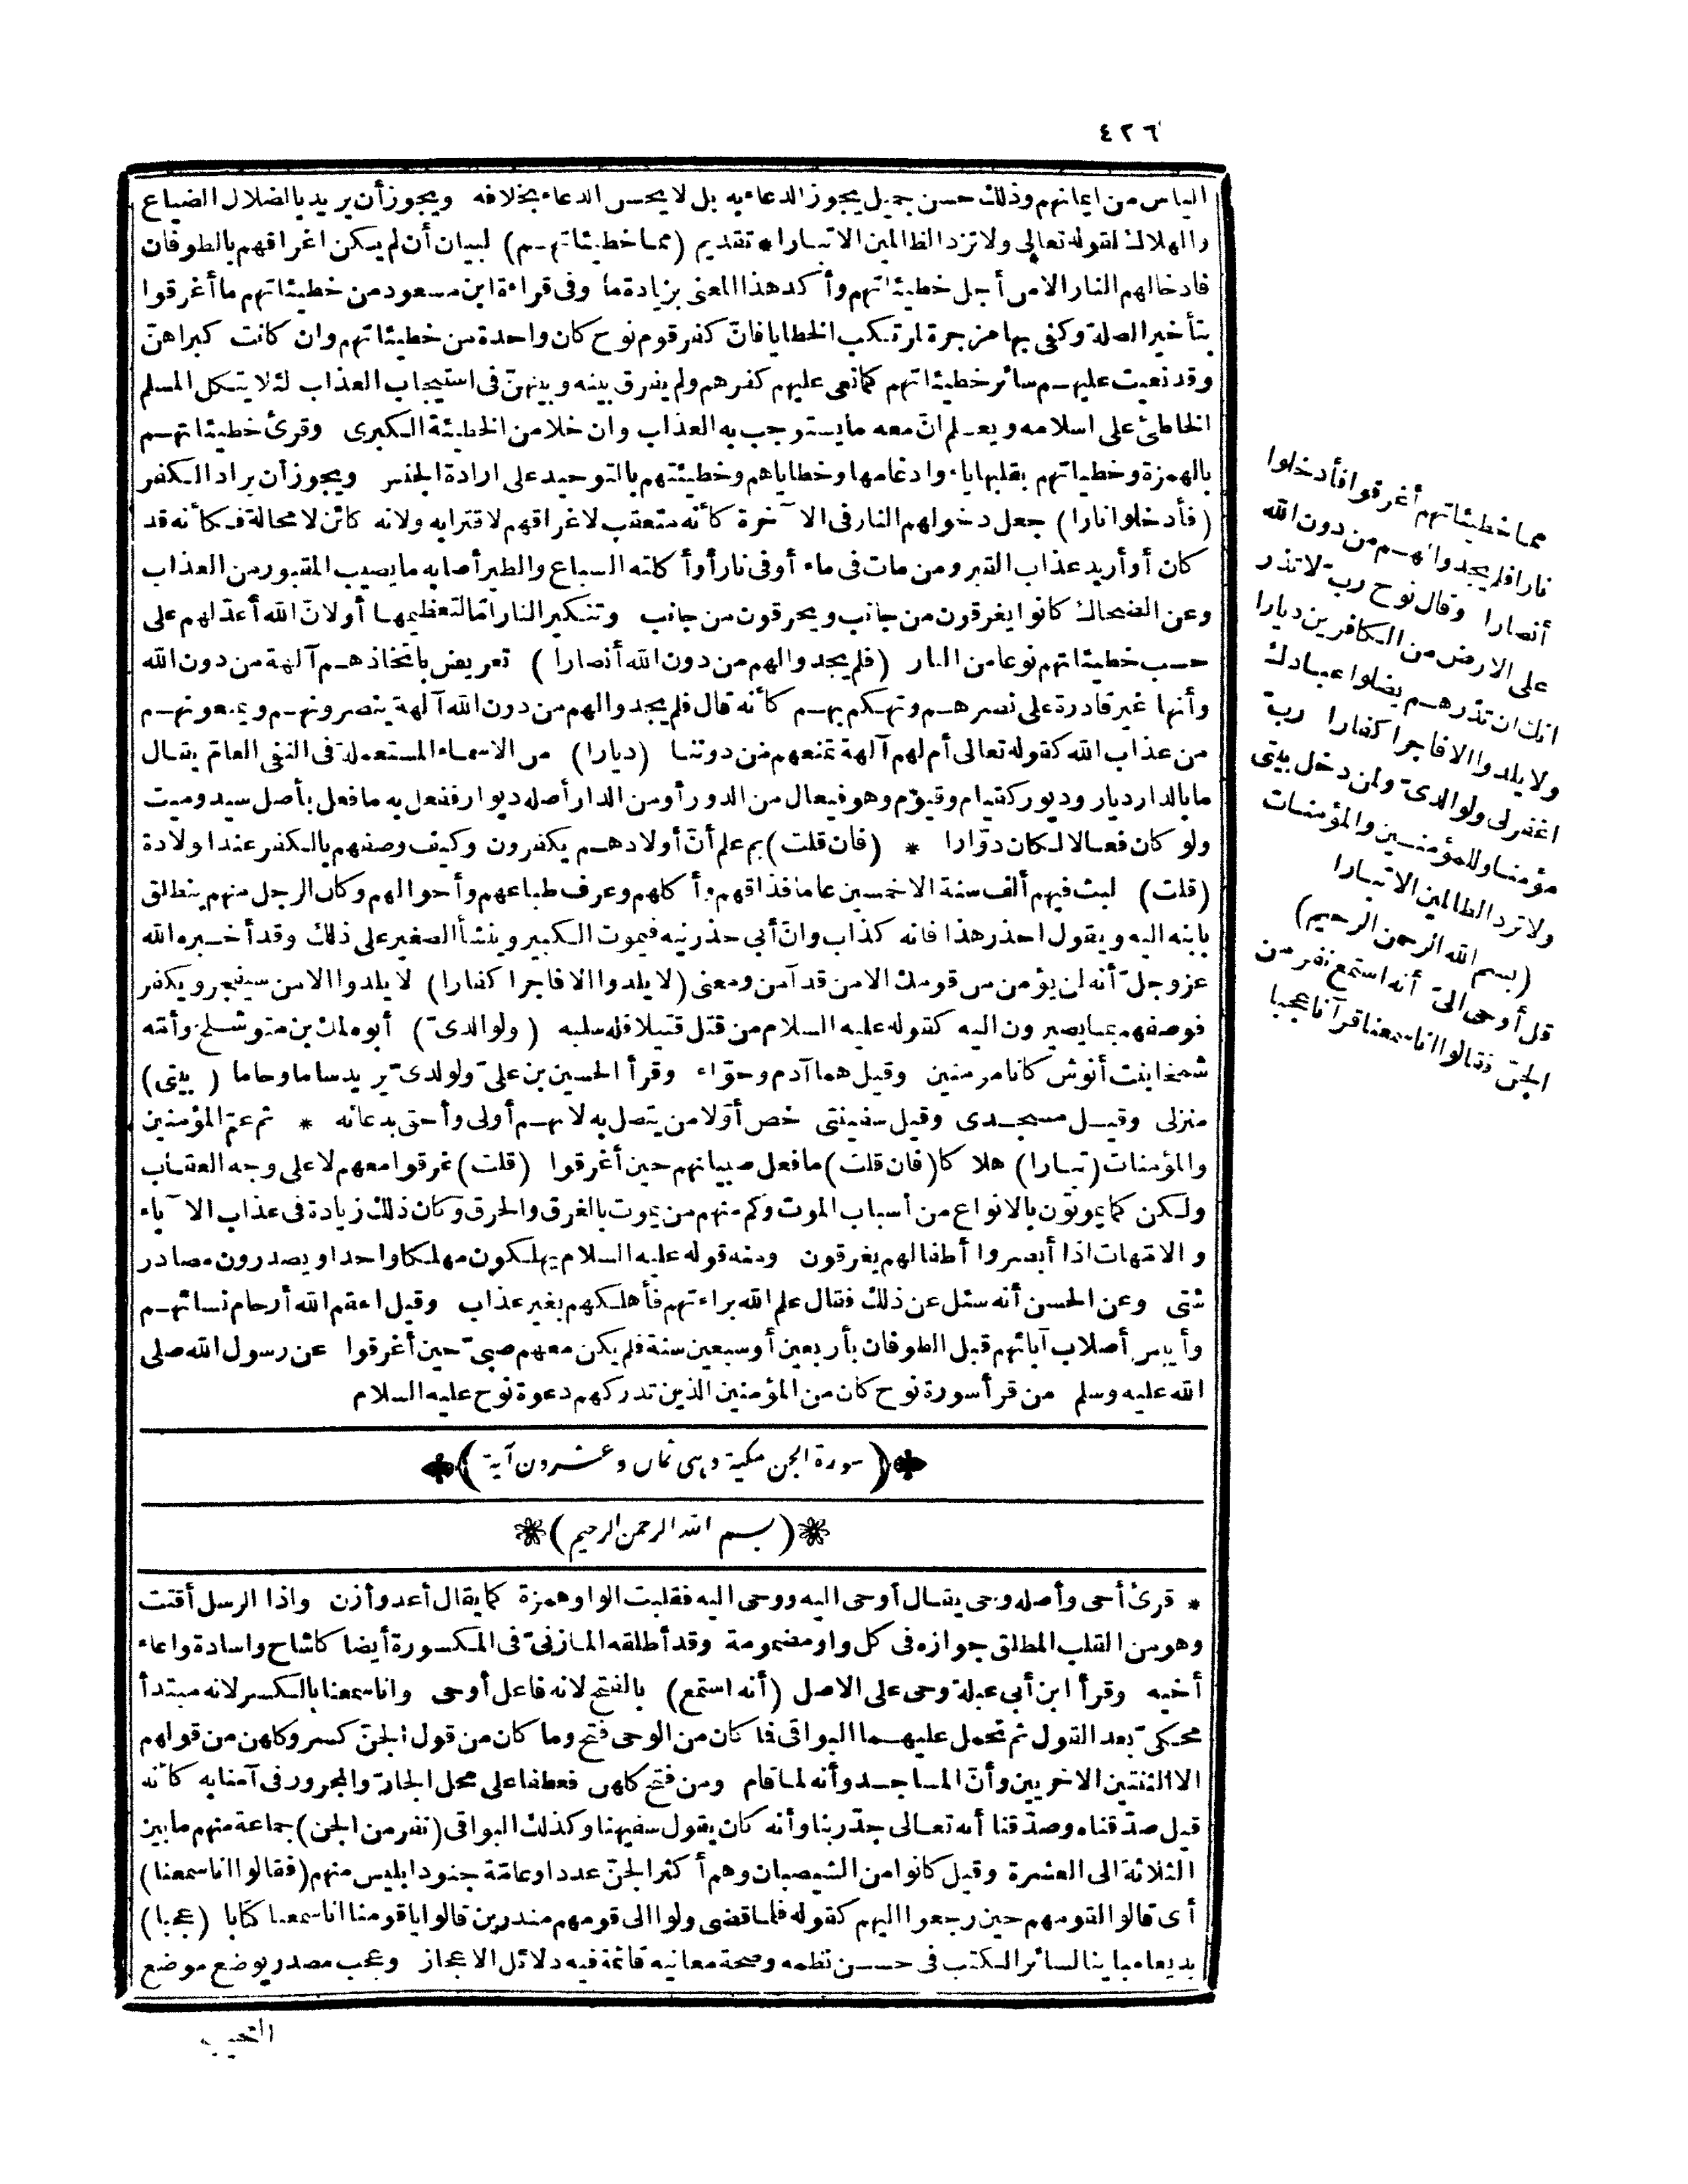 ٤٢٦
الياس من ايمانهم وذلك حسن جميل يجوز الدعاء به بل لا يحسن الدعاء بخلافه ويجوز أن يريد بالضلال الضياع
والهلاك لقوله تعالى ولا تزد الظالمين الا تبارا * تقديم (مما خطيئاتهم) لبيان أن لم يكن اغراقهم بالطوفان
فادخالهم النار الا من أجل خطيئاتهم وأكد هذا المعنى بزيادة ما وفى قراءة ابن مسعود من خطيئاتهم ما أغرقوا
بتأخير الصلة وكفى بها مزجرة لمرتكب الخطايا فانّ كفر قوم نوح كان واحدة من خطيئاتهم وان كانت كبراهنّ
وقد نعيت عليهم سائر خطيئاتهم كما نعى عليهم كفرهم ولم يفرق بينه وبينهنّ فى استيجاب العذاب لئلا يتكل المسلم
الخاطئ على اسلامه ويعلم انّ معه ما يستوجب به العذاب وان خلا من الخطيئة الكبرى وقرئ خطيئاتهم
بالهمزة وخطياتهم بقلبها ياء وادغامها وخطاياهم وخطيئتهم بالتوحيد على ارادة الجنس ويجوز أن يراد الكفر
(فأدخلوا نارا) جعل دخولهم النار فى الآخرة كأنه متعقب لاغراقهم لاقترابه ولانه كائن لا محالة فكأنه قد
كان أو أريد عذاب القبر ومن مات فى ماء أو فى نار أو أكلته السباع والطير أصابه ما يصيب المقبور من العذاب
وعن الضحاك كانوا يغرقون من جانب ويحرقون من جانب وتنكير النار امّا لتعظيمها أو لانّ الله أعدّ لهم على
حسب خطيئاتهم نوعا من النار (فلم يجدوا لهم من دون الله أنصارا) تعريض باتخاذهم آلهة من دون الله
وأنها غير قادرة على نصرهم وتهكم بهم كأنه قال فلم يجدوا لهم من دون الله آلهة ينصرونهم ويمنعونهم
من عذاب الله كقوله تعالى أم لهم آلهة تمنعهم من دوننا (ديارا) من الاسماء المستعملة فى النفى العامّ يقال
ما بالدار ديار وديور كقيام وقيوم وهو فيعال من الدور أو من الدار أصله ديوار ففعل به ما فعل بأصل سيد وميت
ولو كان فعالا لكان دوّارا * (فان قلت) بم علم أنّ أولادهم يكفرون وكيف وصفهم بالكفر عند الولادة
(قلت) لبث فيهم ألف سنة الا خمسين عاما فذاقهم وأكلهم وعرف طباعهم وأحوالهم وكان الرجل منهم ينطلق
بابنه اليه ويقول احذر هذا فانه كذاب وانّ أبى حذرنيه فيموت الكبير وينشأ الصغير على ذلك وقد أخبره الله
عز وجلّ أنه لن يؤمن من قومك الا من قد آمن ومعنى (لا يلدوا الا فاجرا كفارا) لا يلدوا الا من سيفجر ويكفر
فوصفهم بما يصيرون اليه كقوله عليه السلام من قتل قتيلا فله سلبه (ولوالدىّ) أبوه لمك بن متوشلخ وأمّه
شمخا بنت أنوش كانا مؤمنين وقيل هما آدم وحوّاء وقرأ الحسين بن علىّ ولولدىّ يريد ساما وحاما (بيتى)
منزلى وقيل مسجدى وقيل سفينتى خص أوّلا من يتصل به لانهم أولى وأحق بدعائه * ثم عمّ المؤمنين
والمؤمنات (تبارا) هلاكا (فان قلت) ما فعل صبيانهم حين أغرقوا (قلت) غرقوا معهم لا على وجه العقاب
ولكن كما يموتون بالانواع من أسباب الموت وكم منهم من يموت بالغرق والحرق وكان ذلك زيادة فى عذاب الآباء
والامّهات اذا أبصروا أطفالهم يغرقون ومنه قوله عليه السلام يهلكون مهلكا واحدا ويصدرون مصادر
شتى وعن الحسن أنه سئل عن ذلك فقال علم الله براءتهم فأهلكهم بغير عذاب وقيل اعقم الله أرحام نسائهم
وأيبس أصلاب آبائهم قبل الطوفان بأربعين أو سبعين سنة فلم يكن معهم صبىّ حين أغرقوا عن رسول الله صلى
الله عليه وسلم من قرأ سورة نوح كان من المؤمنين الذين تدركهم دعوة نوح عليه السلام
(سورة الجن مكية وهى ثمان وعشرون آية)
(بسم الله الرحمن الرحيم)
* قرئ أحى وأصله وحى يقال أوحى اليه ووحى اليه فقلبت الواو همزة كما يقال أعد وأزن واذا الرسل أقتت
وهو من القلب المطلق جوازه فى كل واو مضمومة وقد أطلقه المازنىّ فى المكسورة أيضا كاشاح واسادة واعاء
أخيه وقرأ ابن أبى عبلة وحى على الاصل (أنه استمع) بالفتح لانه فاعل أوحى وانا سمعنا بالكسر لانه مبتدأ
محكىّ بعد القول ثم تحمل عليهما البواقى فما كان من الوحى فتح وما كان من قول الجنّ كسر وكلهن من قولهم
الا الثنتين الاخريين وأنّ المساجد وأنه لما قام ومن فتح كلهن فعطفا على محل الجارّ والمجرور فى آمنا به كأنه
قيل صدّقناه وصدّقنا أنه تعالى جدّ ربنا وأنه كان يقول سفيهنا وكذلك البواقى (نفر من الجن) جماعة منهم ما بين
الثلاثة الى العشرة وقيل كانوا من الشيصبان وهم أكثر الجنّ عددا وعامّة جنود ابليس منهم (فقالوا انا سمعنا)
أى قالوا لقومهم حين رجعوا اليهم كقوله فلما قضى ولوا الى قومهم منذرين قالوا يا قومنا انا سمعنا كتابا (عجبا)
بديعا مباينا لسائر الكتب فى حسن نظمه وصحة معانيه قائمة فيه دلائل الاعجاز وعجب مصدر يوضع موضع
العجيب
مما خطيئاتهم أغرقوا فأدخلوا
نارا فلم يجدوا لهم من دون الله
أنصارا وقال نوح ربّ لا تذر
على الارض من الكافرين ديارا
انك ان تذرهم يضلوا عبادك
ولا يلدوا الا فاجرا كفارا ربّ
اغفر لى ولوالدىّ ولمن دخل بيتى
مؤمنا وللمؤمنين والمؤمنات
ولا تزد الظالمين الا تبارا
(بسم الله الرحمن الرحيم)
قل أوحى الىّ أنه استمع نفر من
الجنّ فقالوا انا سمعنا قرآنا عجبا